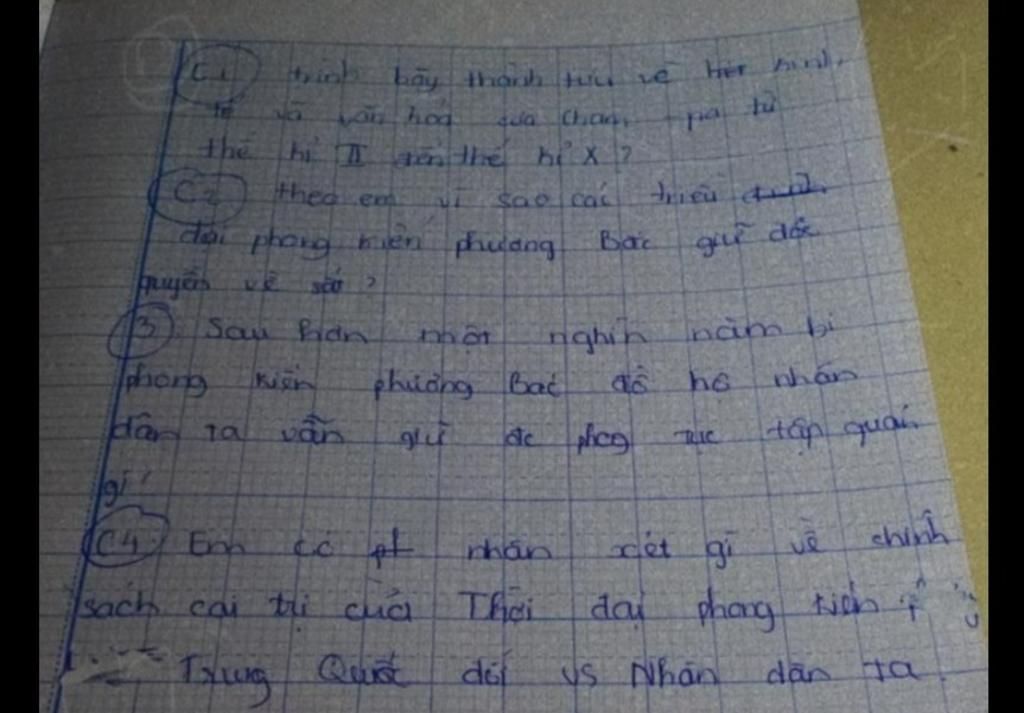 C1 trình bày thành tựu về kinh
tế và văn hoá của Cham pa từ
thế kỉ II đến thế kỉ X?
C2 theo em vì sao các triều
đại phong kiến phương Bắc giữ độc
quyền về sắt?
3 Sau hơn một nghìn năm bị
phong kiến phương Bắc đô hộ nhân
dân ta vẫn giữ đc phog tục tập quán
gì?
C4 Em có nhân xét gì về chính
sách cai trị của Thời đại phong kiến
Trung Quốc đối vs Nhân dân ta